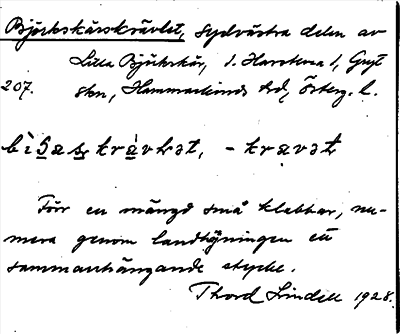 Björkskärskrävlet, sydvästra delen av
Lilla Björkskär, i. Harstena 1, Gryt
207. skn, Hammarkinds hd, Österg. l.
krävlǝt, - kravǝt
Förr en mängd små klabbar, nu-
mera genom landhöjningen ett
sammanhängande stycke.
Thord Lindell 1928.